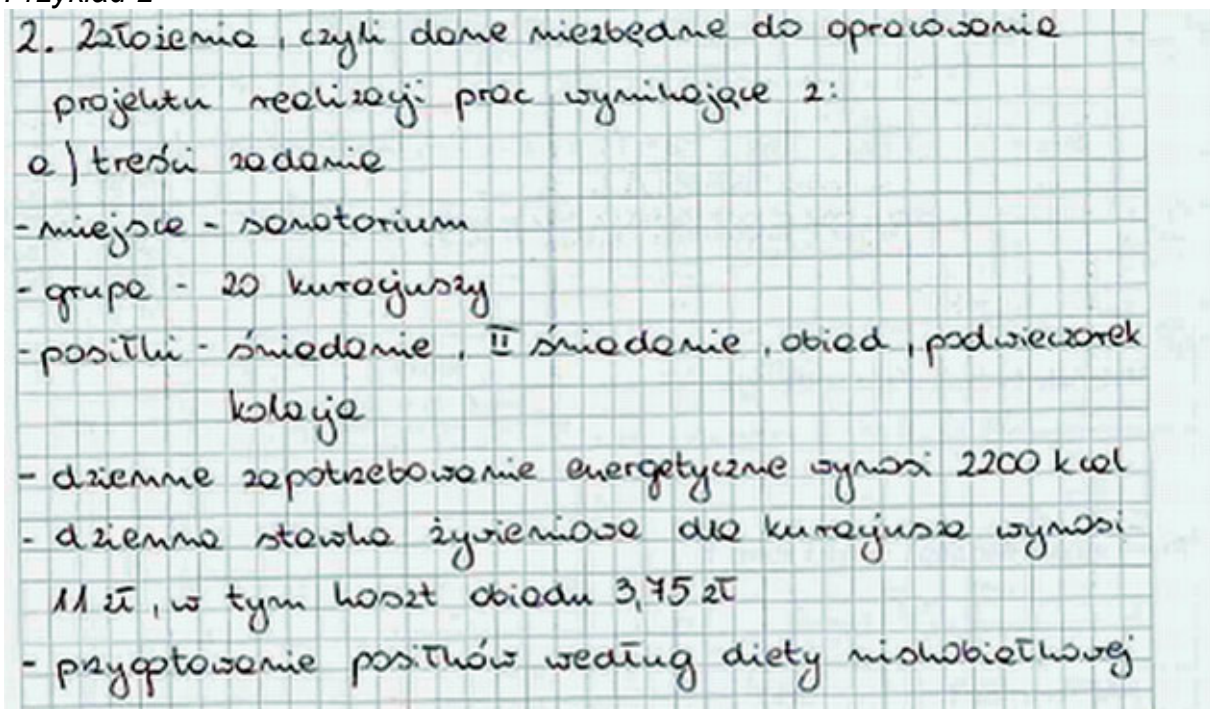 Przykład 2
2. Założenia, czyli dane niezbędne do opracowania
projektu realizacji prac wynikające z:
a) treści zadania
- miejsce - sanatorium
- grupa - 20 kuracjuszy
- posiłki - śniadanie, II śniadanie, obiad, podwieczorek
kolacja
- dzienne zapotrzebowanie energetyczne wynosi 2200 kcal
- dzienna stawka żywieniowa dla kuracjusza wynosi
11 zł, w tym koszt obiadu 3,75 zł
- przygotowanie posiłków według diety niskobiałkowej